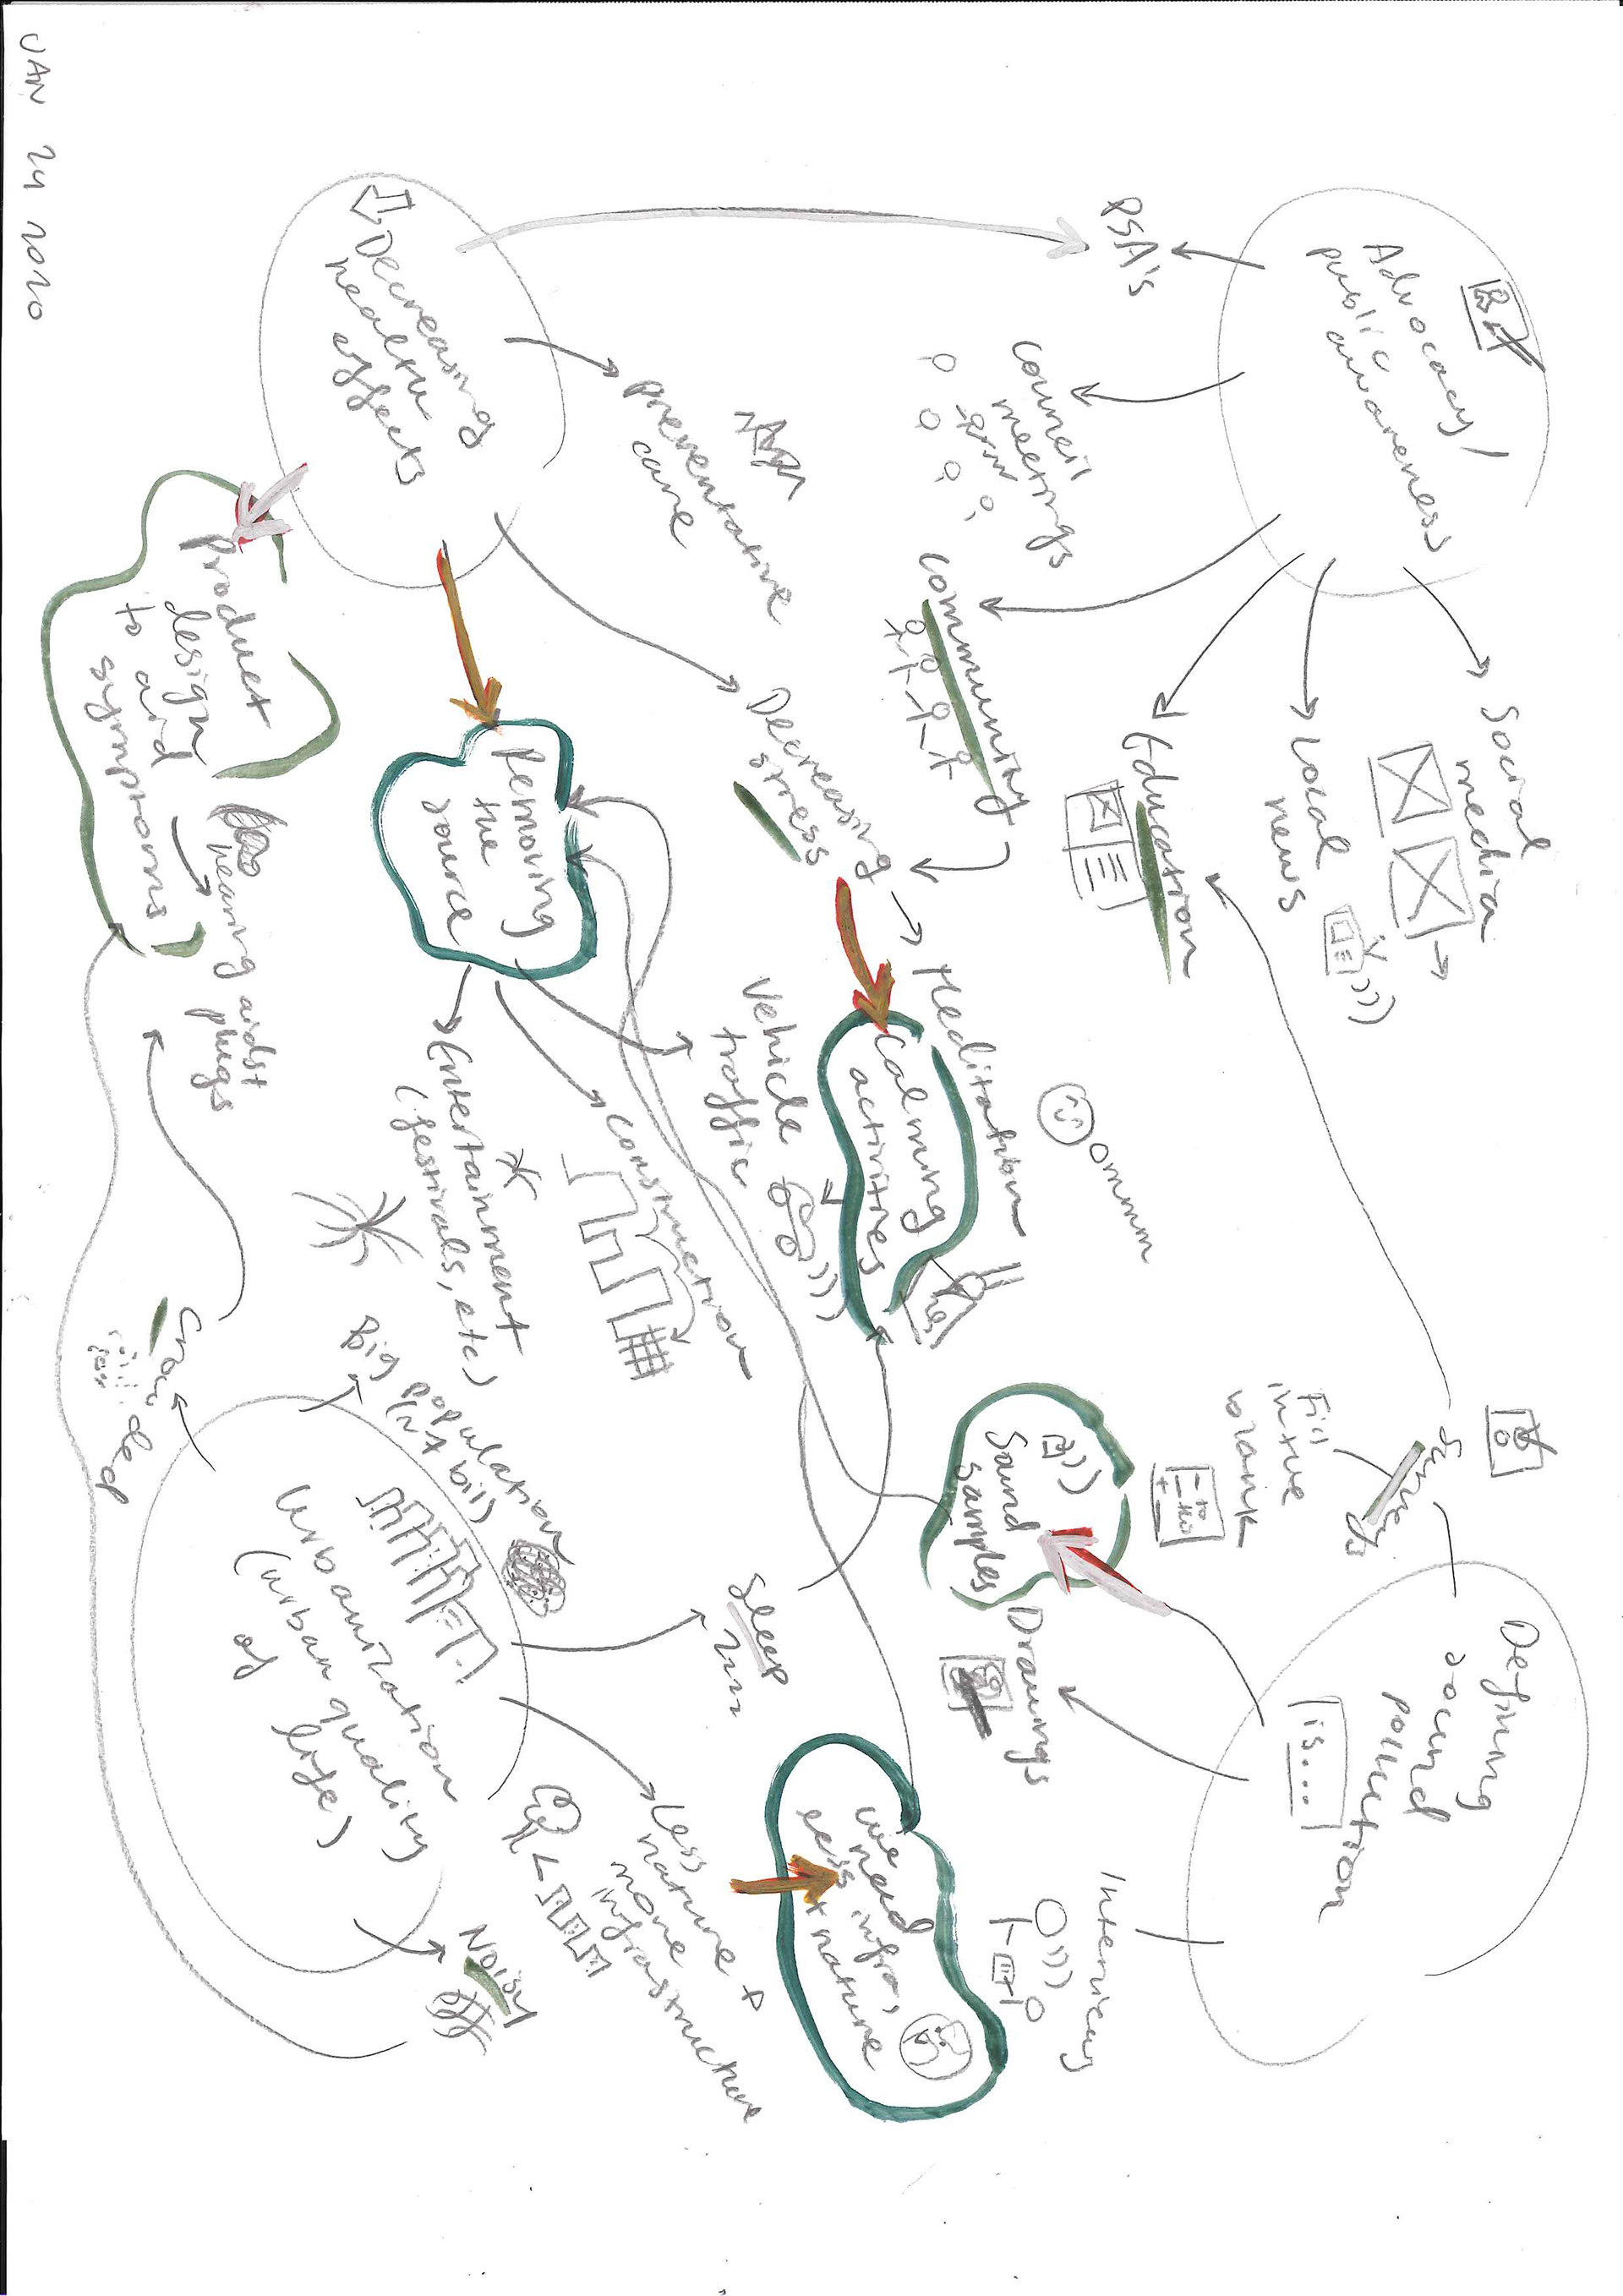 JAN 24 2020
Decreasing
health
effects
Advocacy/
public
awareness
PSA's
Council
meetings
Community
Education
Local
news
Social
media
Preventative
care
Decreasing
stress
Meditation
ommm
Calming
activities
Removing
the
source
Vehicle
traffic
Construction
Entertainment
(festivals, etc)
Product
design
to aid
symptoms
hearing aids+
plugs
Defining
sound
pollution
is...
Surveys
Fill
in the
blank
Sound
samples
Drawings
Interviews
Urbanization
(urban quality
of life)
Big population
Crowded
Sleep
zzzz
Less
nature +
more
infrastructure
we
need
less infra,
+ nature
Noisy